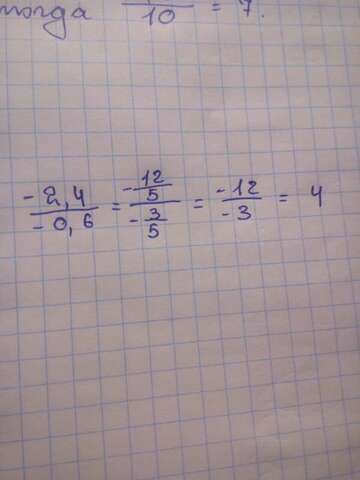 тогда /10 = 7.
-2,4/-0,6 = -12/5/-3/5 = -12/-3 = 4